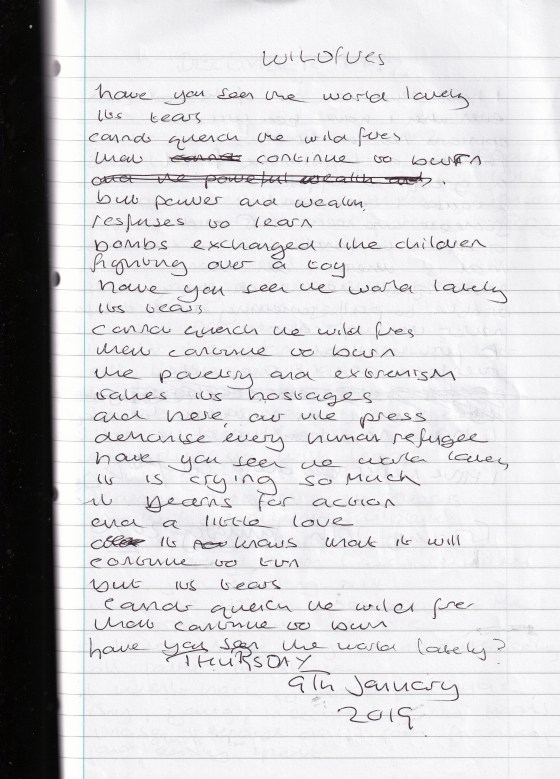 WILDfires
have you seen the world lately
its tears
cannot quench the wild fires
that cannot continue to burn
and the powerful wealth
but power and wealth
refuses to learn
bombs exchanged like children
fighting over a toy
have you seen the world lately
its tears
cannot quench the wild fires
that continue to burn
the poverty and extremism
takes its hostages
and here, our vile press
demonise every human refugee
have you seen the world lately
it is crying so much
it yearns for action
and a little love
it knows that it will
continue to turn
but its tears
cannot quench the wild fire
that continue to burn
have you seen the world lately?
THURSDAY
9th January
2019